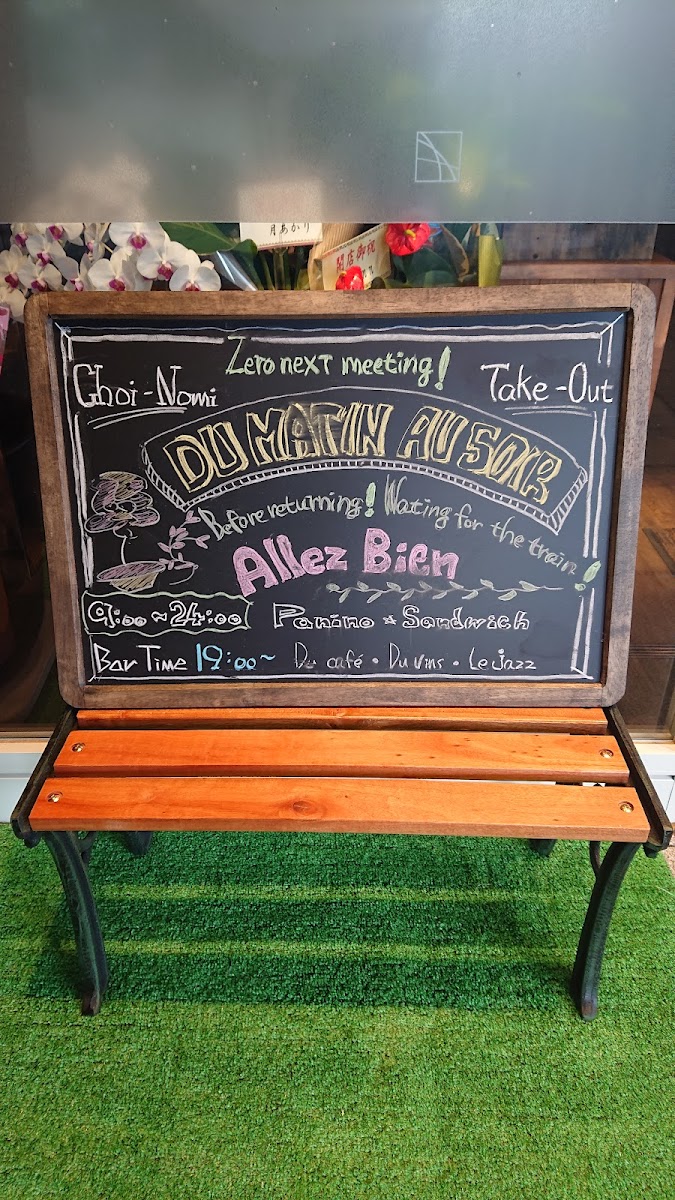 月あかり
開店御祝
Zero next meeting!
Choi-Nomi
Take-Out
DU MATIN AU SOIR
Before returning! Wating for the train!
Allez Bien
9:00~24:00
Panino & Sandwich
Bar Time 19:00~
Du café・Du vins・Le jazz